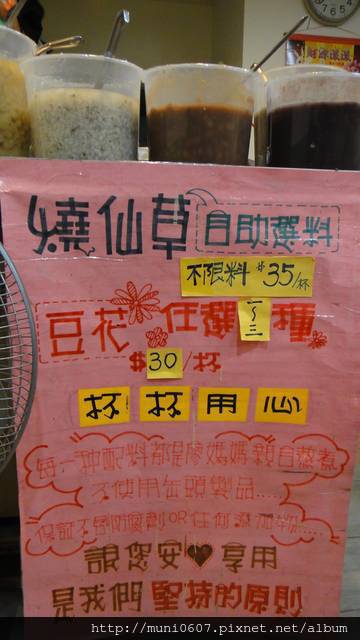 燒仙草 自助選料
不限料 $35/杯
豆花 任選 一~三 種
$30/杯
杯杯用心
每一种配料都是廖媽媽親自熬煮
不使用缶頭製品.....
保証不含防腐劑OR任何添加物.....
讓您安♥享用
是我們 堅持的原則
http://muni0607.pixnet.net/album